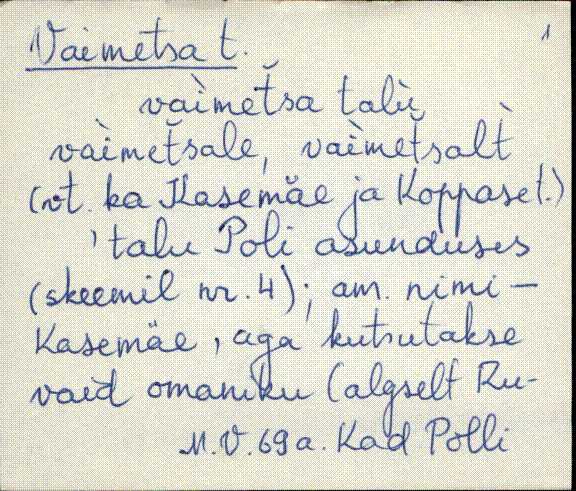 1
Vaimetsa t.
vaìmet̆sa talù
vaìmet̆sale, vaìmet̆salt
(vt. ka Kasemäe ja Koppaset.)
'talu Poli asunduses
(skeemil nr. 4); am. nimi –
Kasemäe, aga kutsutakse
vaid omaniku (algselt Ru-
M.V. 69 a. Kad Polli